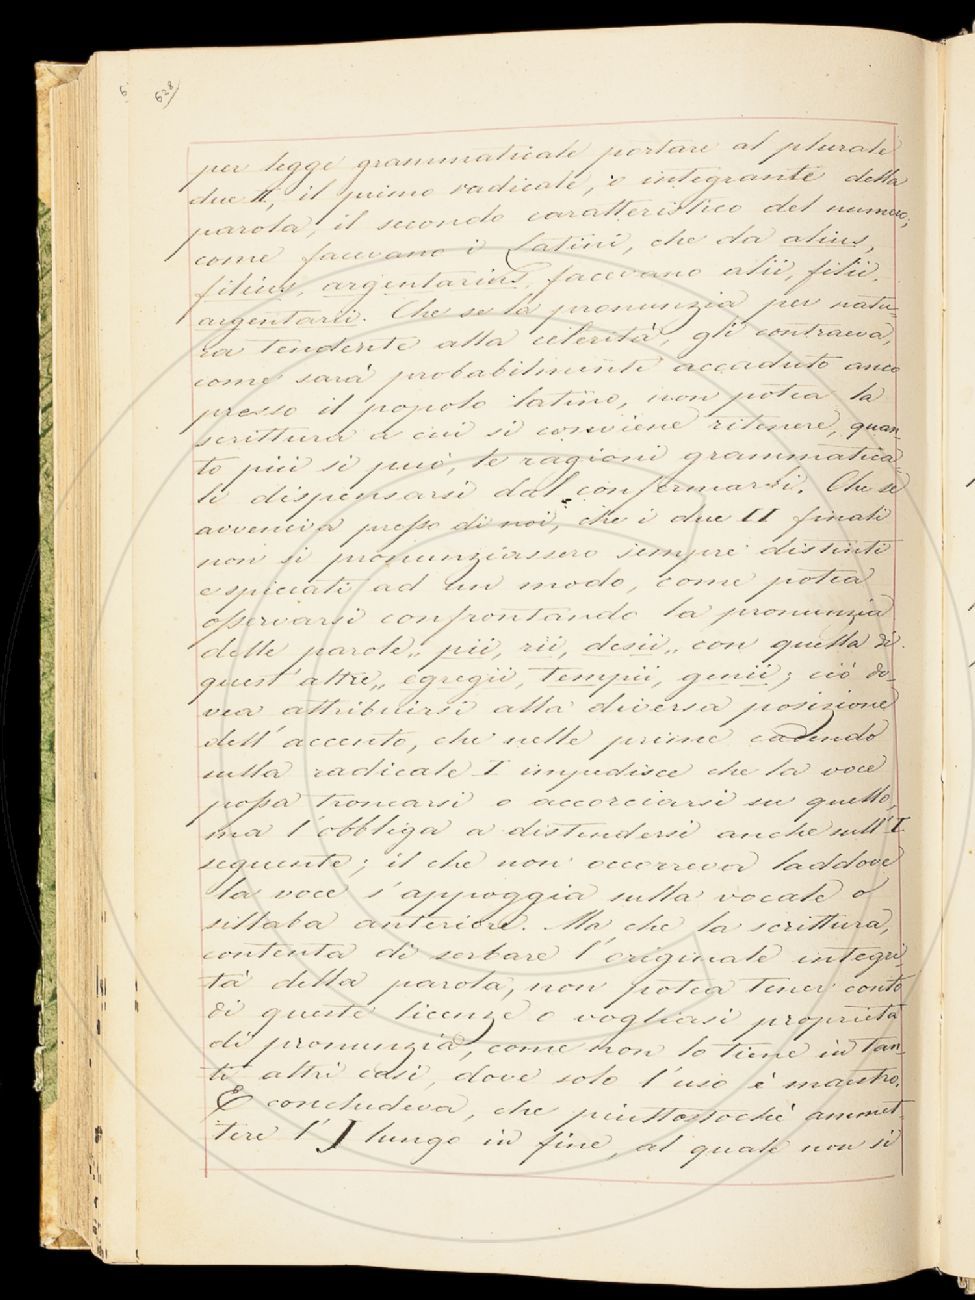 6 628
per legge grammaticale portare al plurale
due II, il primo radicale, o integrante della
parola, il secondo caratteristico del numero;
come facevano i Latini, che da alius,
filius, argentarius, facevano alii, filii,
argentarii. Che se la pronunzia per natu-
ra tendente alla celerità, gli contraeva,
come sarà probabilmente accaduto anco
presso il popolo latino, non potea la
scrittura a cui si conviene ritenere, quan-
to più si può, le ragioni grammatica-
li dispensarsi dal confermarsi. Che se
avveniva presso di noi, che i due II finali
non si pronunziassero sempre distinti
e spiccati ad un modo, come potea
osservarsi confrontando la pronunzia
delle parole „ pii, rii, desii „ con quella di
quest'altre „ egregii, tempii, genii; ciò do-
vea attribuirsi alla diversa posizione
dell'accento, che nelle prime cadendo
sulla radicale I impedisce che la voce
possa troncarsi o accorciarsi su quello,
ma l'obbliga a distendersi anche sull'I
seguente; il che non occorreva laddove
la voce s'appoggia sulla vocale o
sillaba anteriore. Ma che la scrittura,
contenta di serbare l'originale integri-
tà della parola, non potea tener conto
di queste licenze o vogliasi proprietà
di pronunzia, come non lo tiene in tan-
ti altri casi, dove solo l'uso è maestro.
E concludeva, che piuttostochè ammet-
tere l'J lungo in fine, al quale non si